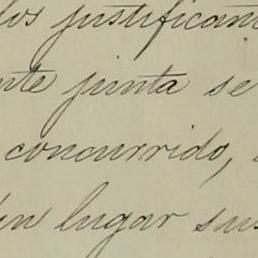 los justifican
nte junta se
concurrido,
ún lugar sus